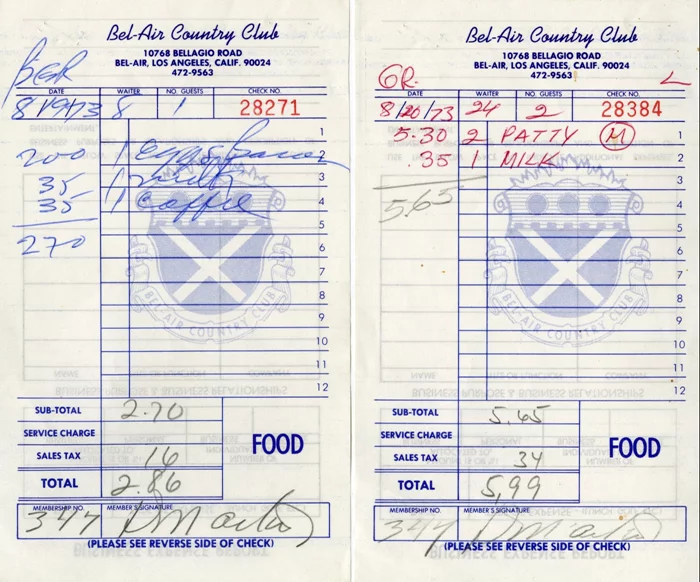 Bel-Air Country Club
10768 BELLAGIO ROAD
BEL-AIR, LOS ANGELES, CALIF. 90024
472-9563
DATE WAITER NO. GUESTS CHECK NO.
8/19/73 8 1 28271
1
200 1 Eggs Bacon 2
35 1 3
35 1 Coffee 4
5
270 6
7
8
9
10
11
12
BEL-AIR COUNTRY CLUB
SUB-TOTAL 2.70
SERVICE CHARGE
SALES TAX 16
TOTAL 2.86
FOOD
MEMBERSHIP NO. MEMBER'S SIGNATURE
347 D Martin
(PLEASE SEE REVERSE SIDE OF CHECK)
Bel-Air Country Club
10768 BELLAGIO ROAD
BEL-AIR, LOS ANGELES, CALIF. 90024
472-9563
GR. L
DATE WAITER NO. GUESTS CHECK NO.
8/20/73 24 2 28384
5.30 2 PATTY M 1
.35 1 MILK 2
3
5.65 4
5
6
7
8
9
10
11
12
BEL-AIR COUNTRY CLUB
SUB-TOTAL 5.65
SERVICE CHARGE
SALES TAX 34
TOTAL 5.99
FOOD
MEMBERSHIP NO. MEMBER'S SIGNATURE
347 D Martin
(PLEASE SEE REVERSE SIDE OF CHECK)